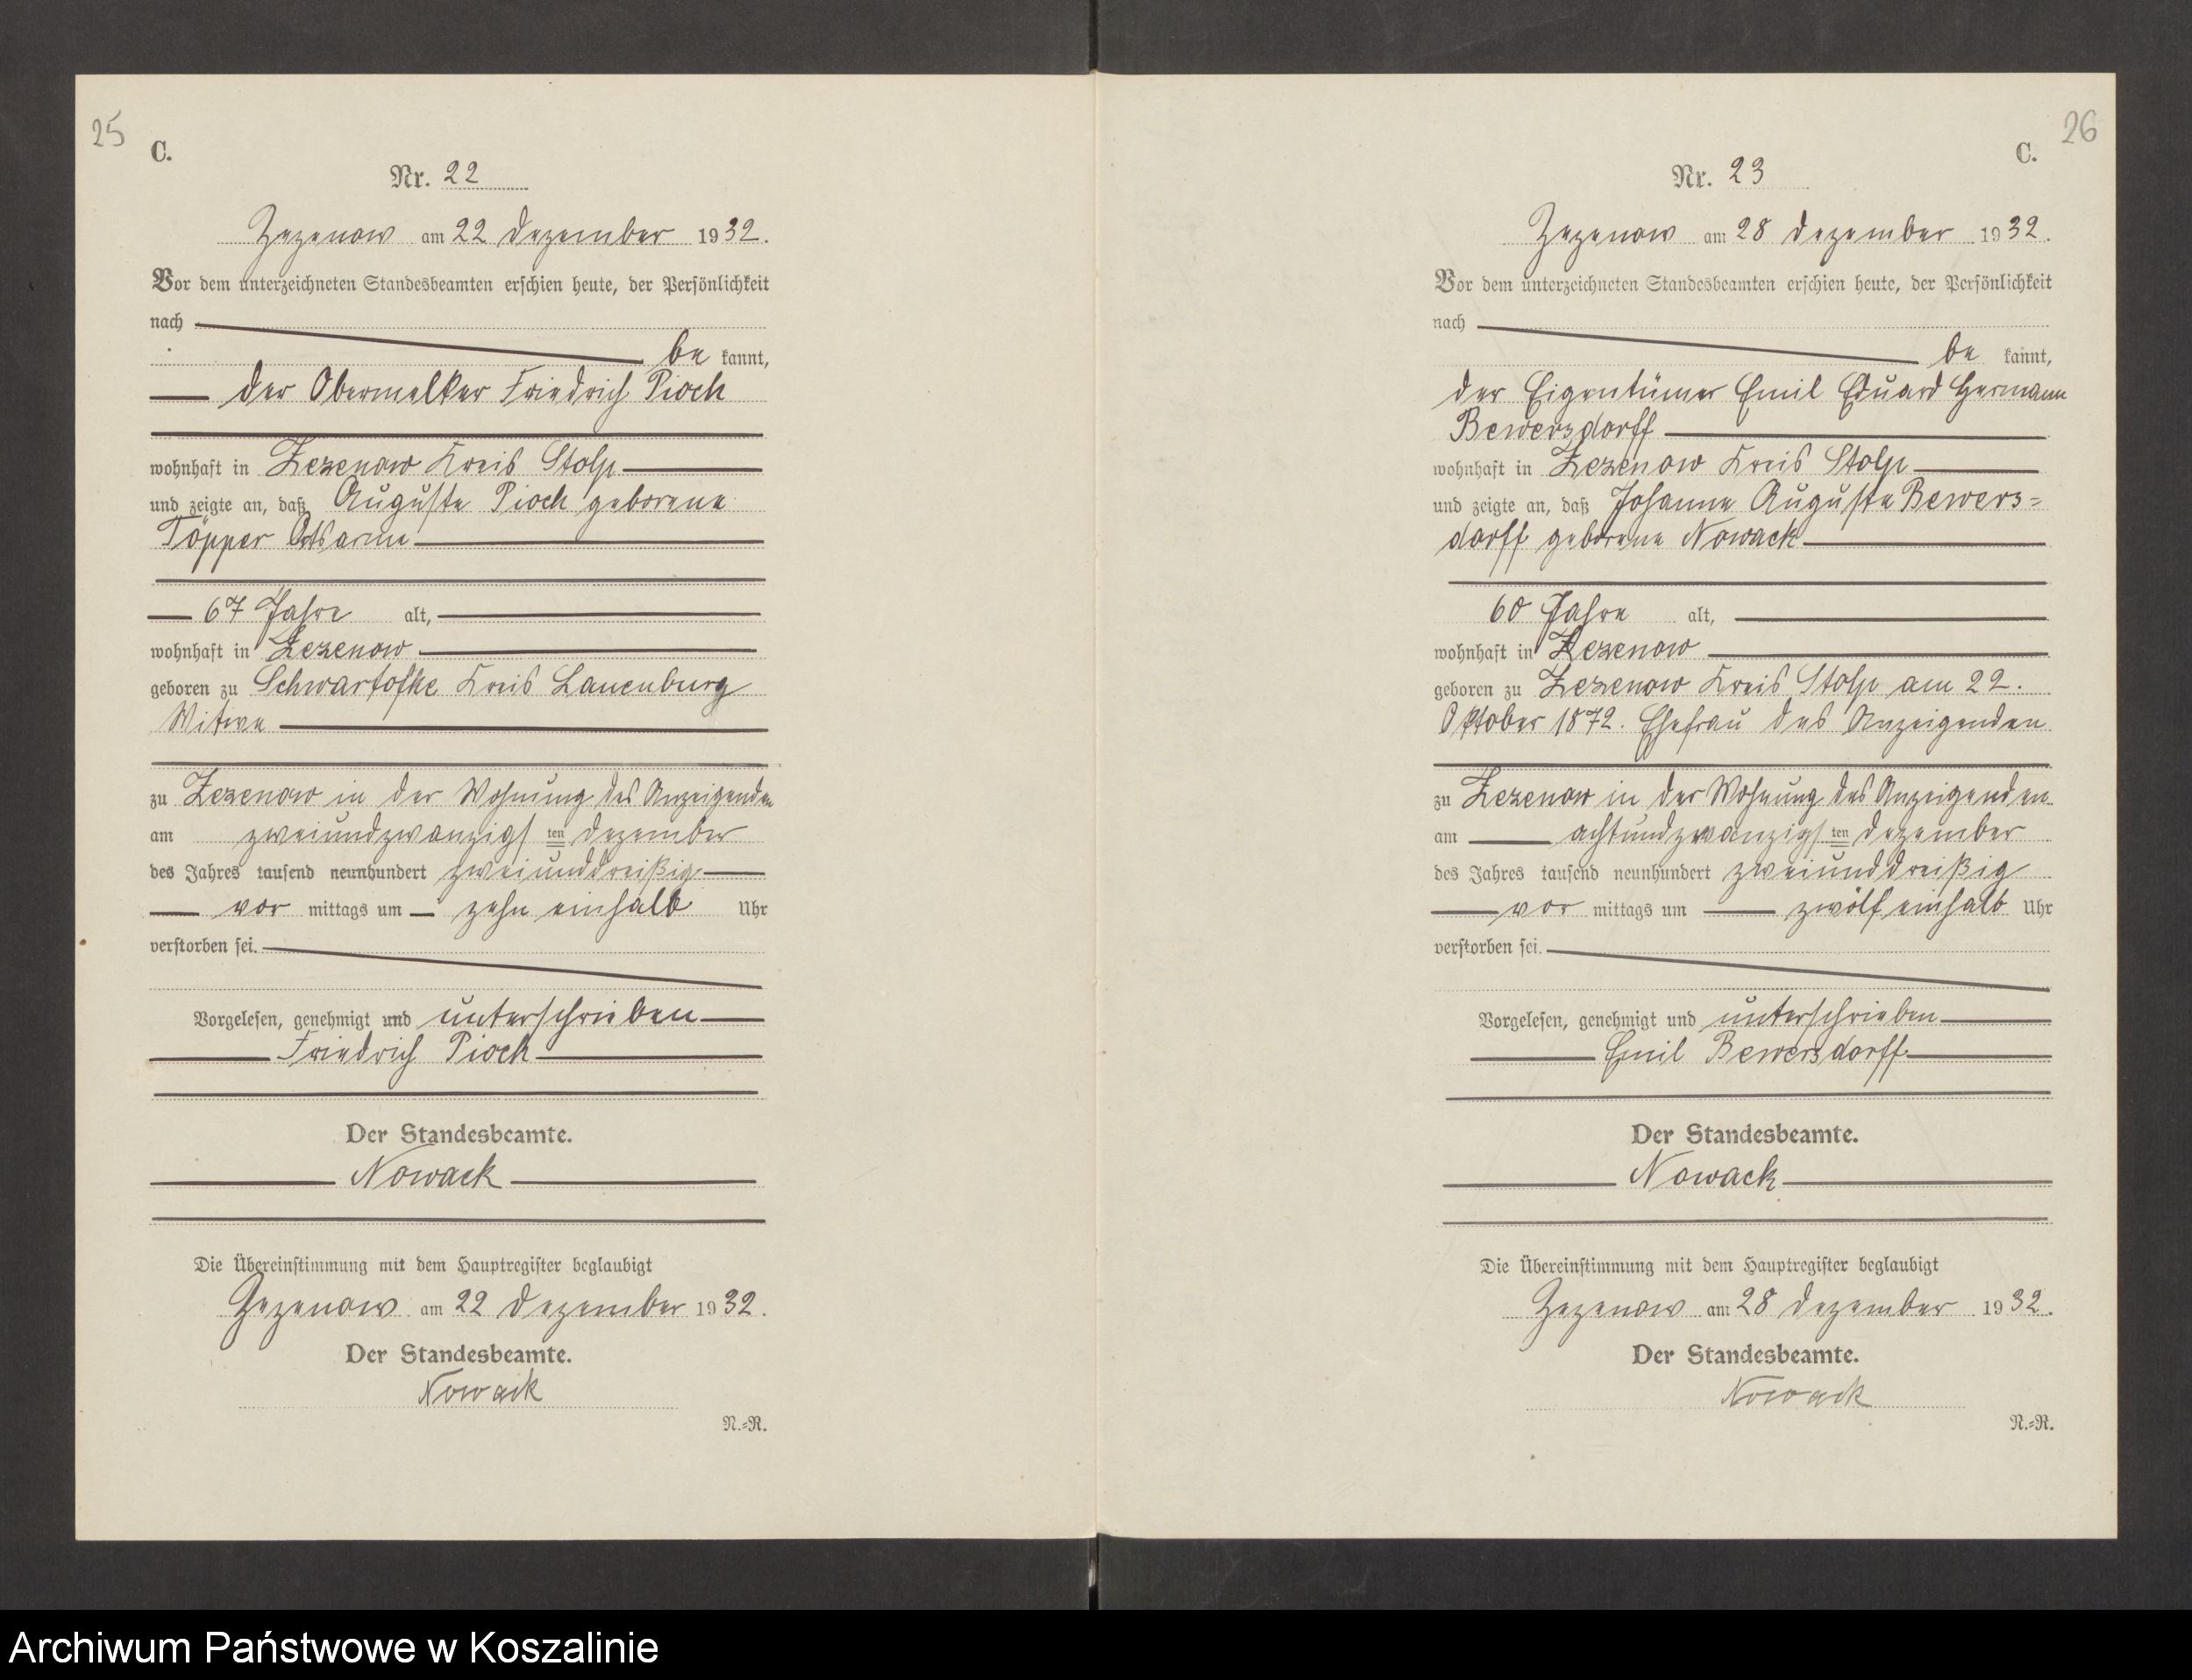 25
C.
Nr. 22
Zezenow am 22 Dezember 1932.
Vor dem unterzeichneten Standesbeamten erschien heute, der Persönlichkeit
nach
be kannt,
der Obermelker Friedrich Pioch
wohnhaft in Zezenow Kreis Stolp
und zeigte an, daß Auguste Pioch geborene
Töpper Ortsarme
67 Jahre alt,
wohnhaft in Zezenow
geboren zu Schwartofke Kreis Lauenburg
Witwe
zu Zezenow in der Wohnung des Anzeigenden
am zweiundzwanzigsten Dezember
des Jahres tausend neunhundert zweiunddreißig
vor mittags um zehn einhalb Uhr
verstorben sei.
Vorgelesen, genehmigt und unterschrieben
Friedrich Pioch
Der Standesbeamte.
Nowack
Die Übereinstimmung mit dem Hauptregister beglaubigt
Zezenow am 22 Dezember 1932.
Der Standesbeamte.
Nowack
N.=R.
26
C.
Nr. 23
Zezenow am 28 Dezember 1932.
Vor dem unterzeichneten Standesbeamten erschien heute, der Persönlichkeit
nach
be kannt,
der Eigentümer Emil Eduard Hermann
Bewersdorff
wohnhaft in Zezenow Kreis Stolp
und zeigte an, daß Johanne Auguste Bewers=
dorff geborene Nowack
60 Jahre alt,
wohnhaft in Zezenow
geboren zu Zezenow Kreis Stolp am 22.
Oktober 1872. Ehefrau des Anzeigenden
zu Zezenow in der Wohnung des Anzeigenden
am achtundzwanzigsten Dezember
des Jahres tausend neunhundert zweiunddreißig
vor mittags um zwölf einhalb Uhr
verstorben sei.
Vorgelesen, genehmigt und unterschrieben
Emil Bewersdorff
Der Standesbeamte.
Nowack
Die Übereinstimmung mit dem Hauptregister beglaubigt
Zezenow am 28 Dezember 1932.
Der Standesbeamte.
Nowack
N.=R.
Archiwum Państwowe w Koszalinie